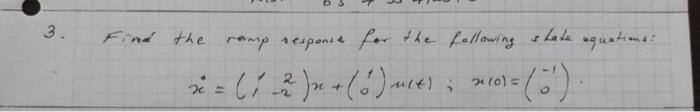 3. Find the ramp response for the following state equations:
ẋ = (1 2 1 -2) x + (1 0) u(t) ; x(0) = (-1 0) .